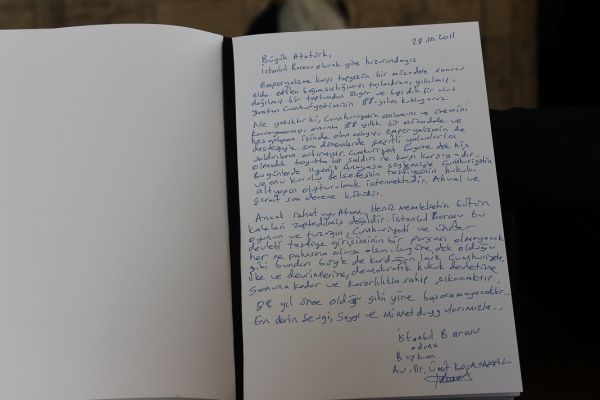 28.10.2011
Büyük Atatürk,
İstanbul Barosu olarak yine huzurundayız
Emperyalizme karşı topyekün bir mücadele sonucu
elde edilen bağımsızlığımızı taçlandıran, yıkılmış,
dağılmış bir toplumdan özgür ve başı dik bir ulus
yaratan Cumhuriyetimizin 88. yılını kutluyoruz.
Ne yazıktır ki, Cumhuriyetin anlamını ve önemini
kavrayamamış, onunla 88 yıllık bir mücadele ve
hesaplaşma içinde olan anlayış, emperyalizmin de
desteğiyle son dönemlerde çeşitli yalanlarla
saldırılarını artırmıştır. Cumhuriyet bugüne dek hiç
olmadık boyutta bir saldırı ile karşı karşıyadır.
Bugünlerde ilgenli Anayasa söylemiyle Cumhuriyetin
ve onu kuruluş felsefesinin tasfiyesinin hukuki
altyapısı oluşturulmak istenmektedir. Ahval ve
şerait son derece kötüdür.
Ancak rahat uyu Atam. Henüz memleketin bütün
kaleleri zaptedilmiş değildir. İstanbul Barosu bu
oyunun ve tuzağın, Cumhuriyeti ve üniter
devleti tasfiye girişiminin bir parçası olmayacak,
her ne pahasına olursa olsun bugüne dek olduğu
gibi bundan böyle de kurduğun laik Cumhuriyete,
ilke ve devrimlerine, demokratik hukuk devletine
sonuna kadar ve kararlılıkla sahip çıkacaktır.
88 yıl önce olduğu gibi yine başaramayacaklar..
En derin Sevgi, Saygı ve Minnet duygularımızla..
İstanbul Barosu
adına
Başkan
Av. Dr. Ümit KOCASAKAL